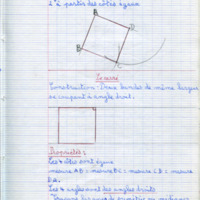 2° à partir des côtés égaux
B
A
C
Le carré
Construction : Deux bandes de même largeur
se coupant à angle droit.
Propriétés :
Les 4 côtés sont égaux
mesure AB = mesure BC = mesure CD = mesure
DA.
Les 4 angles sont des angles droits